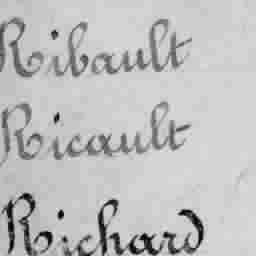 Ribault
Ricault
Richard